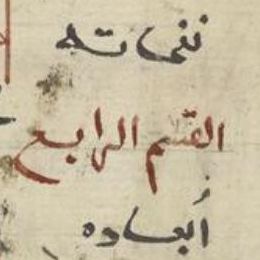 نغماته
القسم الرابع
أبعاده